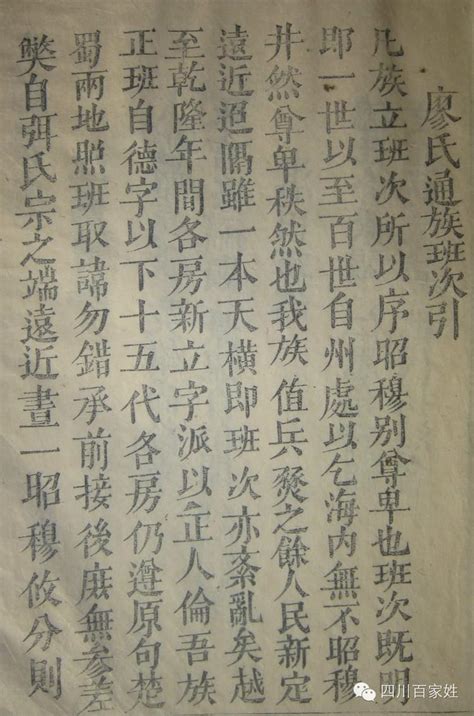 廖氏通族班次引
凡族立班次所以序昭穆别尊卑也班次既明
即一世以至百世自州處以乞海內無不昭穆
井然尊卑秩然也我族值兵燹之餘人民新定
遠近迢隔雖一本天橫即班次亦紊亂矣越
至乾隆年間各房新立字派以正人倫吾族
正班自德字以下十五代各房仍遵原句楚
蜀兩地照班取諱勿錯承前接後庶無參差
獘自弭氏宗之端遠近畫一昭穆攸分則
四川百家姓